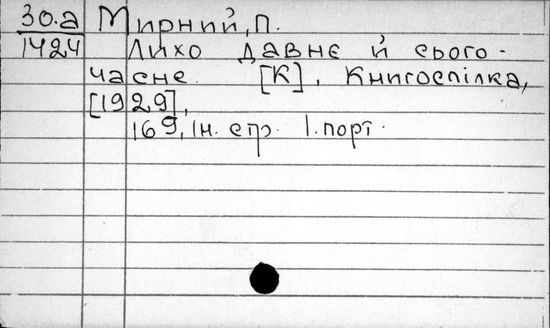 30.а Мирний, П.
1424 Лихо давнє й сього-
часне. [К], Книгоспілка,
[1929],
169, Iн. стр. I. порт.